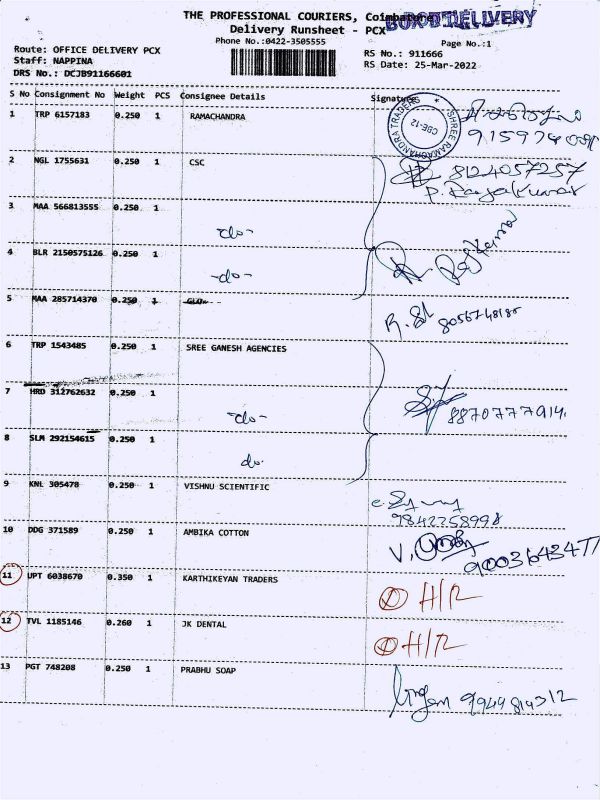 THE PROFESSIONAL COURIERS, Coimbatore
Delivery Runsheet - PCX
Phone No.:0422-3505555
Route: OFFICE DELIVERY PCX
Staff: NAPPINA
DRS No.: DCJB91166601
Page No.:1
RS No.: 911666
RS Date: 25-Mar-2022
S No Consignment No Weight PCS Consignee Details Signature
1 TRP 6157183 0.250 1 RAMACHANDRA
SHREE RAMACHANDRA TRADERS
CBE-12
2 NGL 1755631 0.250 1 CSC 8124057257
P. Rajakumar
3 MAA 566813555 0.250 1 -do-
4 BLR 2150575126 0.250 1 -do-
5 MAA 285714370 0.250 1
6 TRP 1543485 0.250 1 SREE GANESH AGENCIES
7 HRD 312762632 0.250 1 -do- 8870777914.
8 SLM 292154615 0.250 1 do.
9 KNL 305478 0.250 1 VISHNU SCIENTIFIC
9842258998
10 DDG 371589 0.250 1 AMBIKA COTTON
11 UPT 6038670 0.350 1 KARTHIKEYAN TRADERS H/R
12 TVL 1185146 0.260 1 JK DENTAL H/R
13 PGT 748208 0.250 1 PRABHU SOAP 9944814312